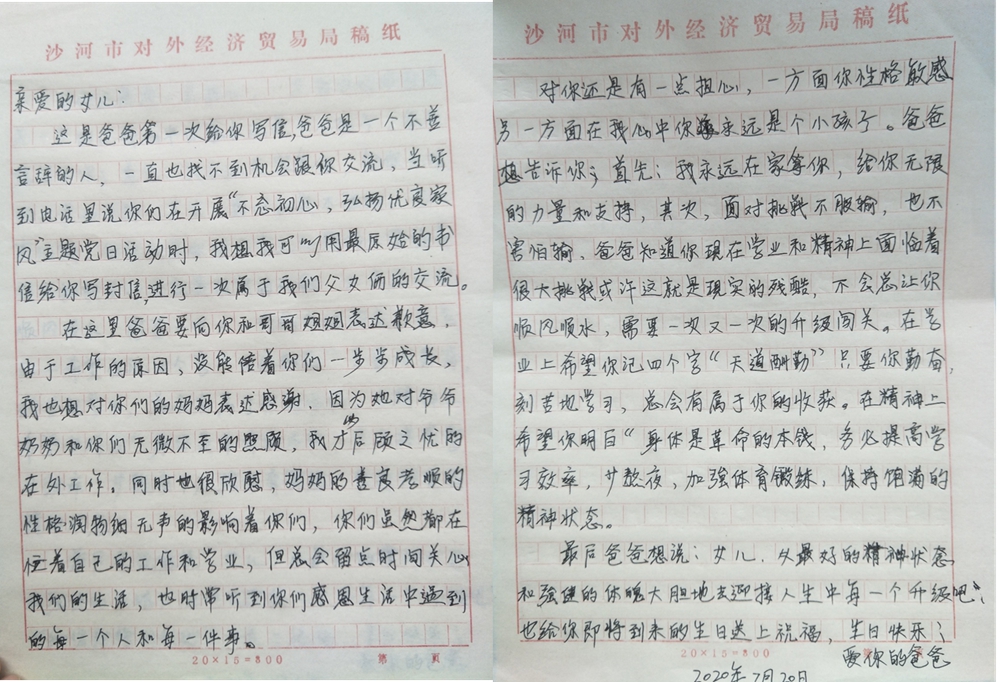 沙河市对外经济贸易局稿纸
亲爱的女儿：
这是爸爸第一次给你写信,爸爸是一个不善
言辞的人，一直也找不到机会跟你交流，当听
到电话里说你们在开展“不忘初心，弘扬优良家
风”主题党日活动时，我想我可以用最原始的书
信给你写封信,进行一次属于我们父女俩的交流。
在这里爸爸要向你和哥哥姐姐表达歉意，
由于工作的原因，没能陪着你们一步步成长，
我也想对你们的妈妈表达感谢，因为她对爷爷
奶奶和你们无微不至的照顾，我才后顾之忧的
在外工作。同时也很欣慰，妈妈的善良孝顺的
性格润物细无声的影响着你们，你们虽然都在
忙着自己的工作和学业，但总会留点时间关心
我们的生活，也时常听到你们感恩生活中遇到
的每一个人和每一件事。
20×15=300 第 页
沙河市对外经济贸易局稿纸
对你还是有一点担心，一方面你性格敏感
另一方面在我心中你永远是个小孩子。爸爸
想告诉你；首先：我永远在家等你，给你无限
的力量和支持，其次，面对挑战不服输，也不
害怕输、爸爸知道你现在学业和精神上面临着
很大挑战或许这就是现实的残酷，不会总让你
顺风顺水，需要一次又一次的升级闯关。在学
业上希望你记四个字“天道酬勤”只要你勤奋，
刻苦地学习，总会有属于你的收获。在精神上
希望你明白“身体是革命的本钱，务必提高学
习效率，少熬夜，加强体育锻练，保持饱满的
精神状态。
最后爸爸想说：女儿，以最好的精神状态
和强健的体魄大胆地去迎接人生中每一个升级吧；
也给你即将到来的生日送上祝福，生日快乐；
20×15=300
爱你的爸爸
2020年7月20日